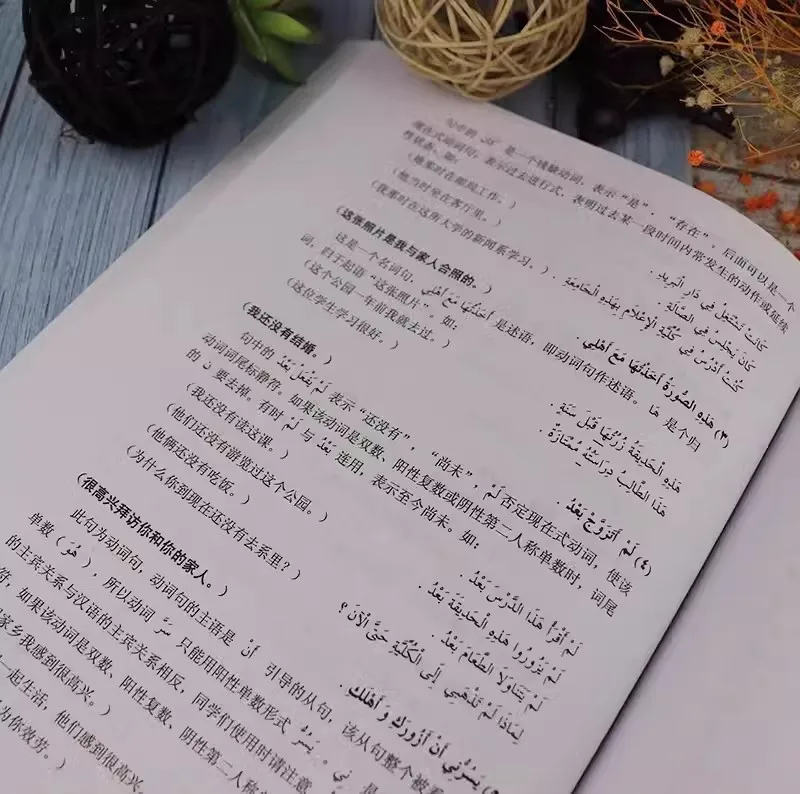 句中的 "كان" 是一个残缺动词，表示“是”，“存在”，后面可以是一个
现在式动词句，表示过去进行式，表明过去某一段时间内常发生的动作或延续
性状态。如：
(她那时在邮局工作。) كَانَتْ تَشْتَغِلُ فِي دَارِ الْبَرِيدِ .
(他当时坐在客厅里。) كَانَ يَجْلِسُ فِي الصَّالَةِ .
(我那时在这所大学的新闻系学习。) كُنْتُ أَدْرُسُ فِي كُلِّيَّةِ الْإِعْلَامِ بِهَذِهِ الْجَامِعَةِ .
(这张照片是我与家人合照的。) (٣) هَذِهِ الصُّورَةُ أَخَذْتُهَا مَعَ أَهْلِي .
这是一个名词句，أَخَذْتُهَا مَعَ أَهْلِي 是述语，即动词句作述语。هَا 是个归
词，归于起语“这张照片”。如：
(这个公园一年前我就去过。) هَذِهِ الْحَدِيقَةُ زُرْتُهَا قَبْلَ سَنَةٍ .
(这位学生学习很好。) هَذَا الطَّالِبُ دِرَاسَتُهُ مُمْتَازَةٌ .
(我还没有结婚。) (٤) لَمْ أَتَزَوَّجْ بَعْدُ .
句中的 لَمْ يَفْعَلْ بَعْدُ 表示“还没有”，“尚未”，لَمْ 否定现在式动词，使该
动词词尾标静符。如果该动词是双数、阳性复数或阴性第二人称单数时，词尾
的 ن 要去掉。有时 لَمْ 与 بَعْدُ 连用，表示至今尚未。如：
(我还没有读这课。) لَمْ أَقْرَأْ هَذَا الدَّرْسَ بَعْدُ .
(他们还没有游览过这个公园。) لَمْ يَزُورُوا هَذِهِ الْحَدِيقَةَ بَعْدُ .
(他俩还没有吃饭。) لَمْ يَتَنَاوَلَا الطَّعَامَ بَعْدُ .
(为什么你到现在还没有去系里？) لِمَاذَا لَمْ تَذْهَبِي إِلَى الْكُلِّيَّةِ حَتَّى الْآنَ ؟
(很高兴拜访你和你的家人。) يَسُرُّنِي أَنْ أَزُورَكَ وَ أَهْلَكَ .
此句为动词句，动词句的主语是 أَنْ 引导的从句，该从句整个被看
单数 (هُوَ)，所以动词 سَرَّ 只能用阳性单数形式 يَسُرُّ。نِي 是
的主宾关系与汉语的主宾关系相反，同学们使用时请注意
符。如果该动词是双数、阳性复数、阴性第二人称
家乡我感到很高兴。)
一起生活，他们感到很高兴。
为你效劳。)